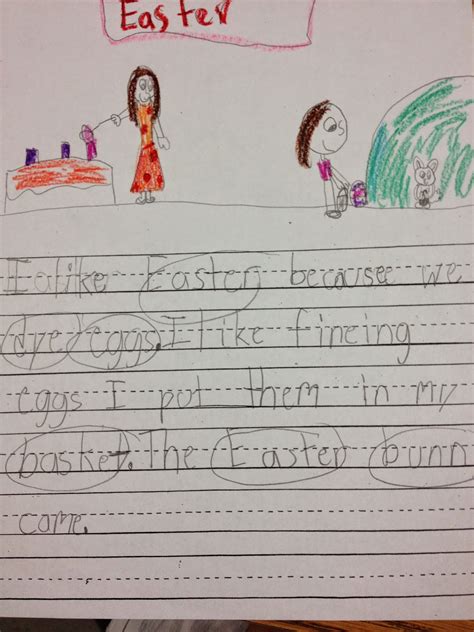 Easter
I like Easter because we
dyed eggs. I like fineing
eggs I pot them in my
basket. The Easter bunn
came.